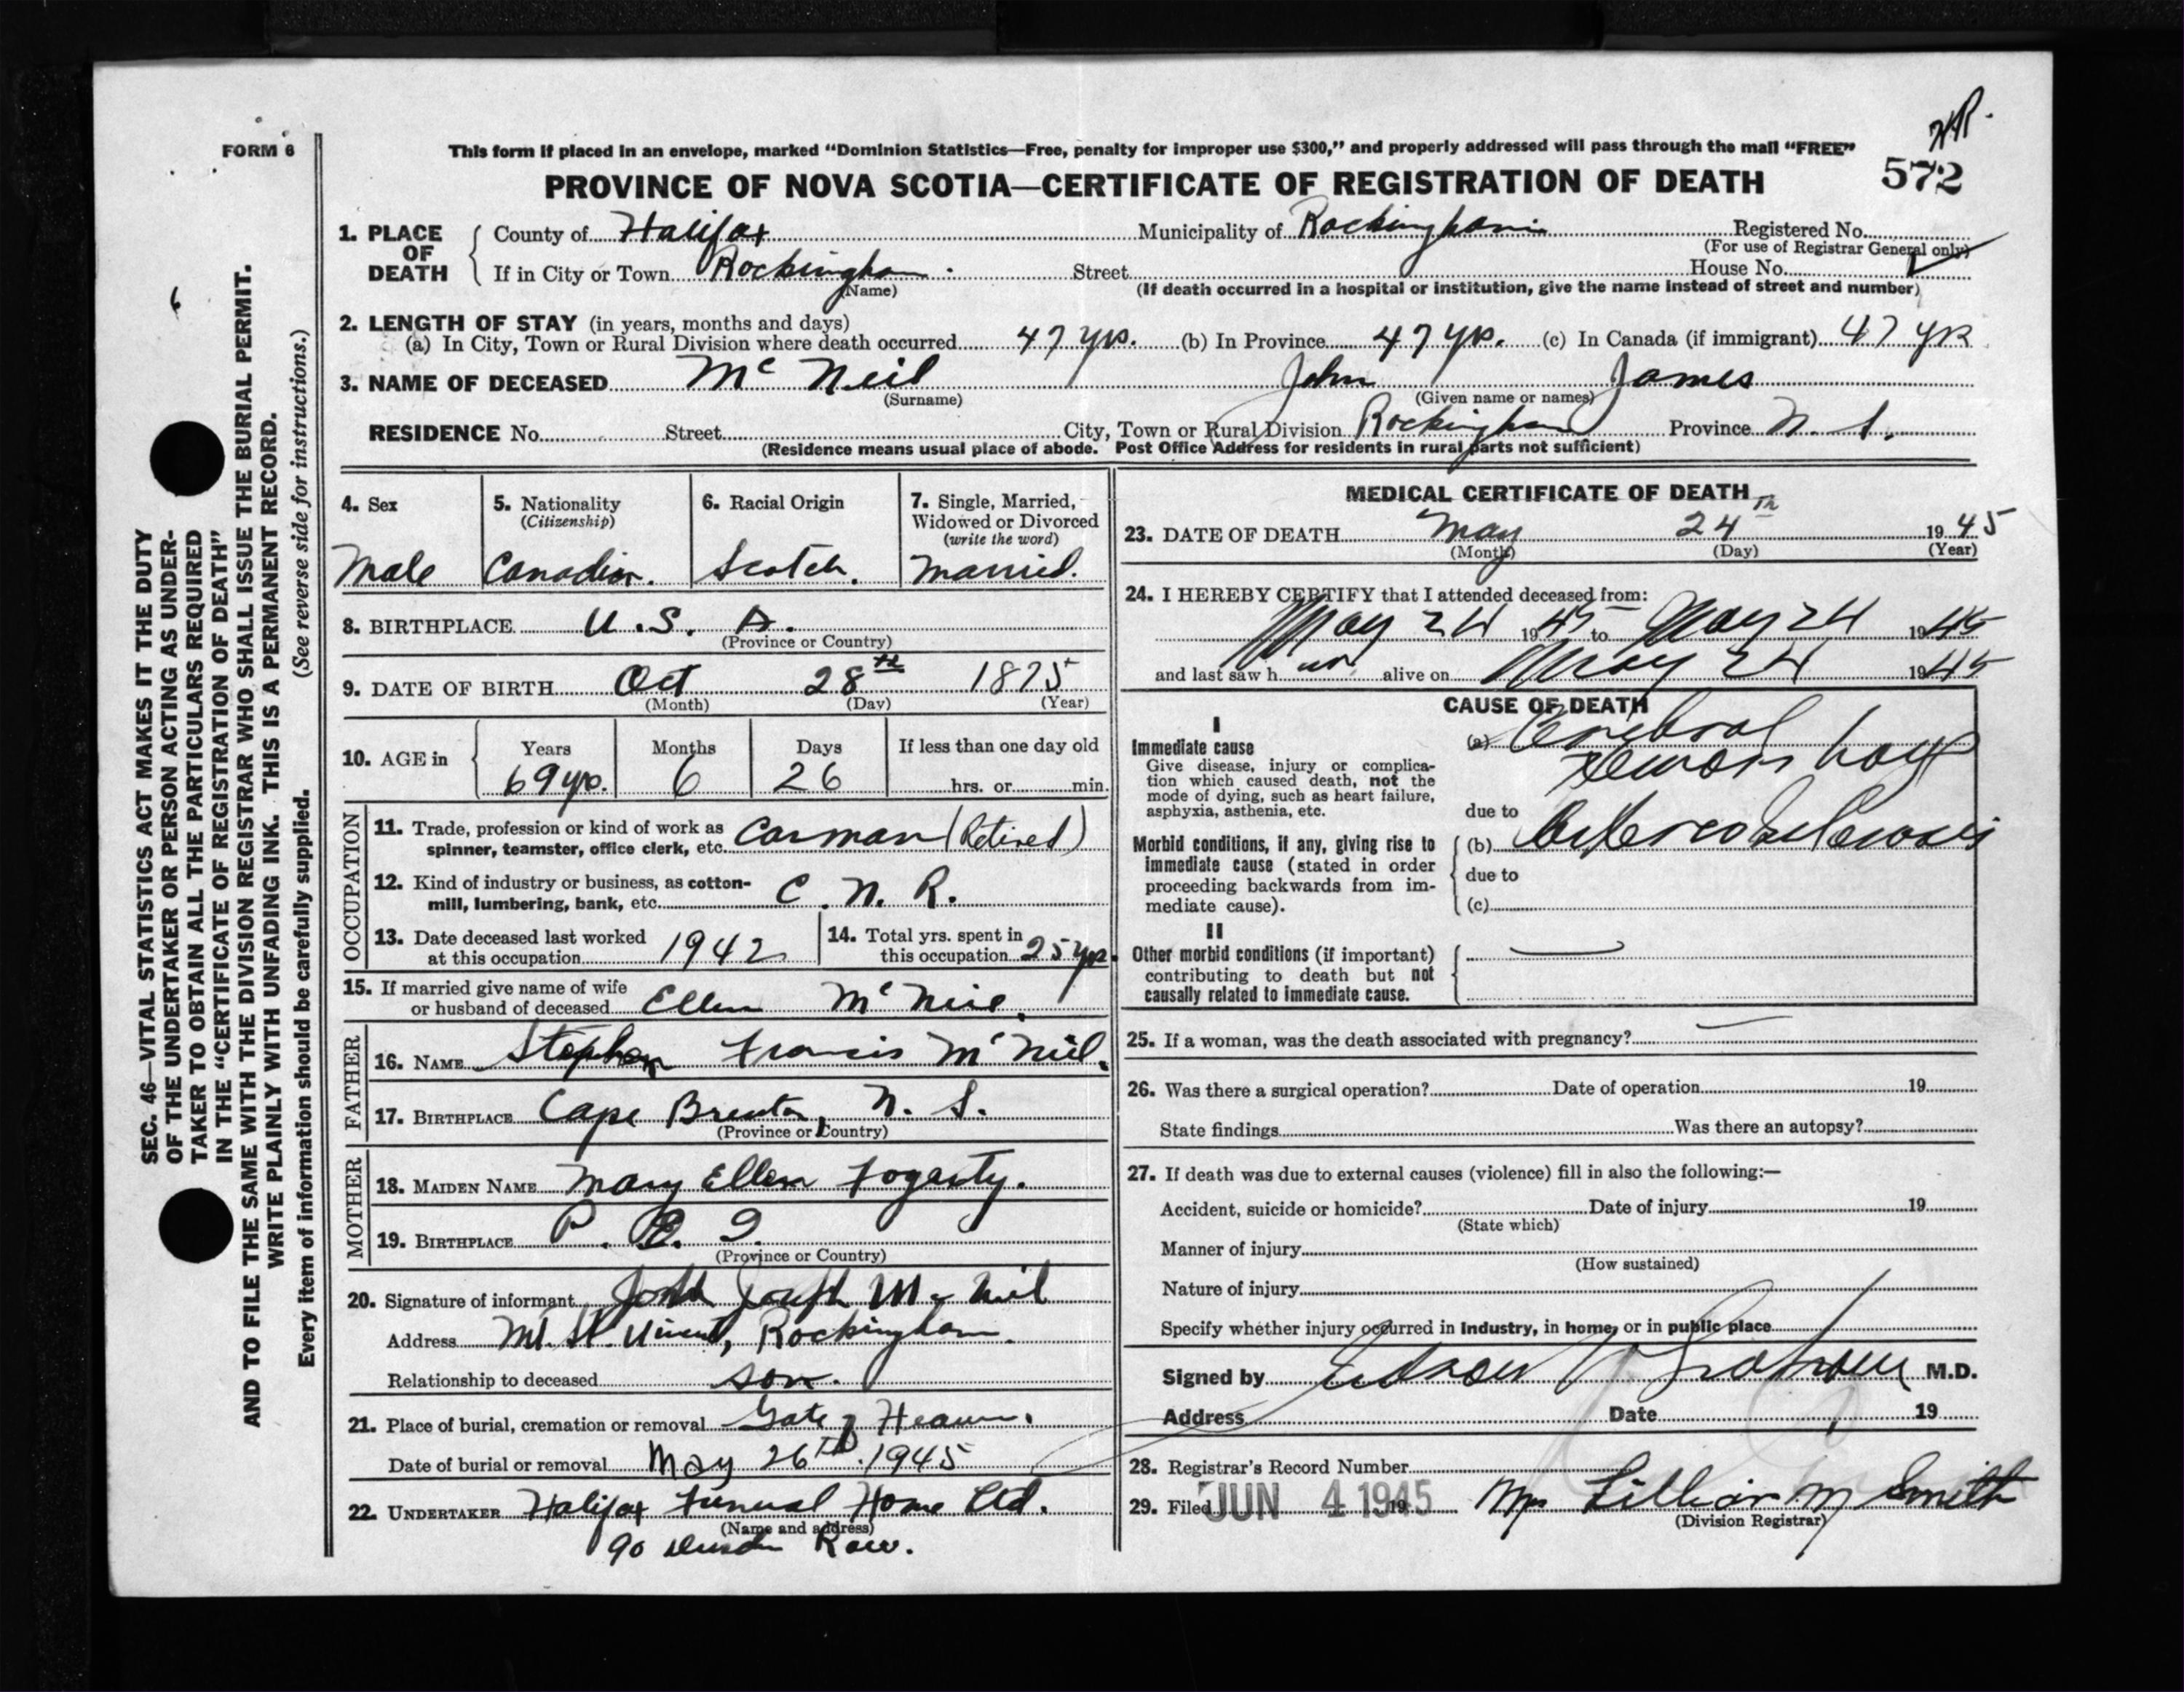 FORM 6
This form if placed in an envelope, marked “Dominion Statistics—Free, penalty for improper use $300,” and properly addressed will pass through the mail “FREE”
572
PROVINCE OF NOVA SCOTIA—CERTIFICATE OF REGISTRATION OF DEATH
1. PLACE OF DEATH
County of Halifax Municipality of Rockingham Registered No.
(For use of Registrar General only)
If in City or Town Rockingham Street House No.
(Name) (If death occurred in a hospital or institution, give the name instead of street and number)
2. LENGTH OF STAY (in years, months and days)
(a) In City, Town or Rural Division where death occurred 47 yrs. (b) In Province 47 yrs. (c) In Canada (if immigrant) 47 yrs
3. NAME OF DECEASED Mc Neil John James
(Surname) (Given name or names)
RESIDENCE No. Street City, Town or Rural Division Rockingham Province N. S.
(Residence means usual place of abode. Post Office Address for residents in rural parts not sufficient)
4. Sex
Male
5. Nationality
(Citizenship)
Canadian.
6. Racial Origin
Scotch.
7. Single, Married,
Widowed or Divorced
(write the word)
Married.
8. BIRTHPLACE U. S. A.
(Province or Country)
9. DATE OF BIRTH Oct 28th 1875
(Month) (Day) (Year)
10. AGE in
Years Months Days If less than one day old
69 yrs. 6 26 hrs. or min.
OCCUPATION
11. Trade, profession or kind of work as
spinner, teamster, office clerk, etc. Carman (Retired)
12. Kind of industry or business, as cotton-
mill, lumbering, bank, etc. C. N. R.
13. Date deceased last worked
at this occupation 1942
14. Total yrs. spent in
this occupation 25 yrs.
15. If married give name of wife
or husband of deceased Ellen Mc Neil.
FATHER
16. NAME Stephen Francis Mc Neil.
17. BIRTHPLACE Cape Breton, N. S.
(Province or Country)
MOTHER
18. MAIDEN NAME Mary Ellen Fogerty.
19. BIRTHPLACE P. E. I.
(Province or Country)
20. Signature of informant John Joseph Mc Neil
Address Mt. St. Vincent, Rockingham.
Relationship to deceased son.
21. Place of burial, cremation or removal Gate of Heaven.
Date of burial or removal May 26th. 1945
22. UNDERTAKER Halifax Funeral Home Ltd.
(Name and address)
90 Row.
MEDICAL CERTIFICATE OF DEATH
23. DATE OF DEATH May 24th 1945
(Month) (Day) (Year)
24. I HEREBY CERTIFY that I attended deceased from:
May 24 1945 to May 24 1945
and last saw him alive on May 24 1945
CAUSE OF DEATH
I
Immediate cause
Give disease, injury or complica-
tion which caused death, not the
mode of dying, such as heart failure,
asphyxia, asthenia, etc.
(a) Cerebral
Hemorrhage
due to
Morbid conditions, if any, giving rise to
immediate cause (stated in order
proceeding backwards from im-
mediate cause).
(b) Arteriosclerosis
due to
(c)
II
Other morbid conditions (if important)
contributing to death but not
causally related to immediate cause.
25. If a woman, was the death associated with pregnancy?
26. Was there a surgical operation? Date of operation 19
State findings Was there an autopsy?
27. If death was due to external causes (violence) fill in also the following:—
Accident, suicide or homicide? Date of injury 19
(State which)
Manner of injury
(How sustained)
Nature of injury
Specify whether injury occurred in Industry, in home, or in public place
Signed by M.D.
Address Date 19
28. Registrar's Record Number
29. Filed JUN 4 1945 19 Mrs Lillian M Smith
(Division Registrar)
SEC. 46—VITAL STATISTICS ACT MAKES IT THE DUTY
OF THE UNDERTAKER OR PERSON ACTING AS UNDER-
TAKER TO OBTAIN ALL THE PARTICULARS REQUIRED
IN THE “CERTIFICATE OF REGISTRATION OF DEATH”
AND TO FILE THE SAME WITH THE DIVISION REGISTRAR WHO SHALL ISSUE THE BURIAL PERMIT.
WRITE PLAINLY WITH UNFADING INK. THIS IS A PERMANENT RECORD.
Every item of information should be carefully supplied. (See reverse side for instructions.)